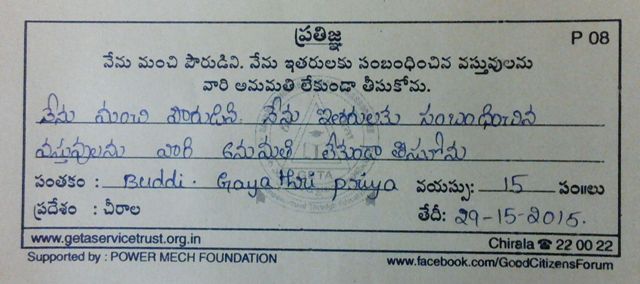 ప్రతిజ్ఞ
P 08
నేను మంచి పౌరుడిని. నేను ఇతరులకు సంబంధించిన వస్తువులను
వారి అనుమతి లేకుండా తీసుకోను.
నేను మంచి పౌరుడిని. నేను ఇతరులకు సంబంధించిన
వస్తువులను వారి అనుమతి లేకుండా తీసుకోను
సంతకం : Buddi. Gayathri priya వయస్సు: 15 సం॥లు
ప్రదేశం : చీరాల తేదీ: 29-15-2015.
GETA
www.getaservicetrust.org.in Chirala ☎ 22 00 22
Supported by : POWER MECH FOUNDATION www.facebook.com/GoodCitizensForum